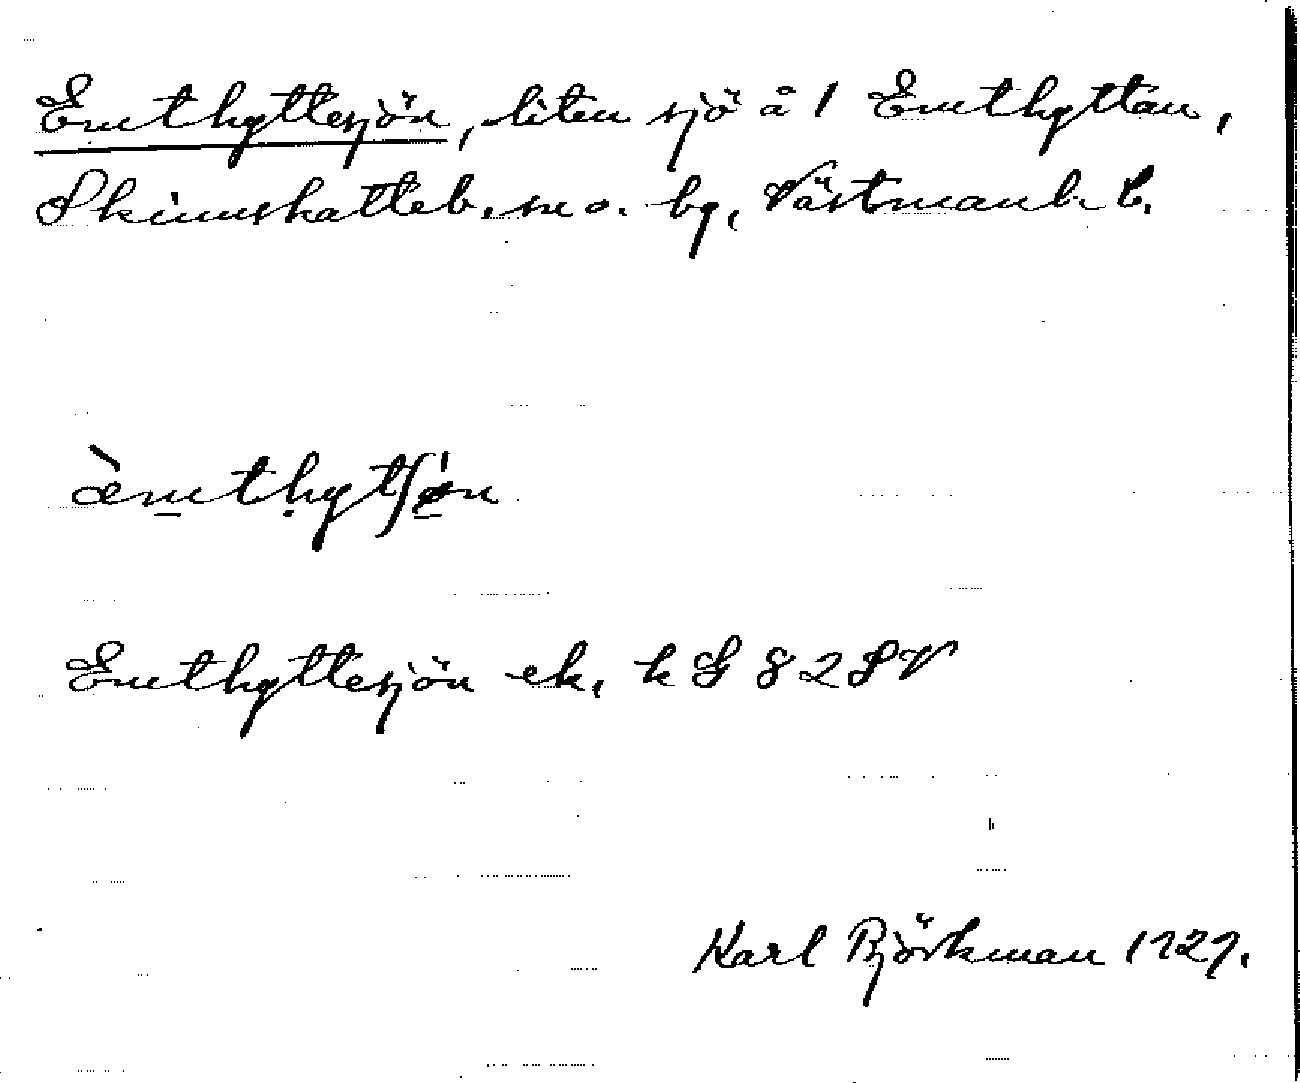 Emthyttesjön, liten sjö å 1 Emthyttan,
Skinnskatteb. sn o. bg, Västmanl. l.
æ̀mthytʃøn
Emthyttesjön ek. k G 82 SV
Karl Björkman 1927.